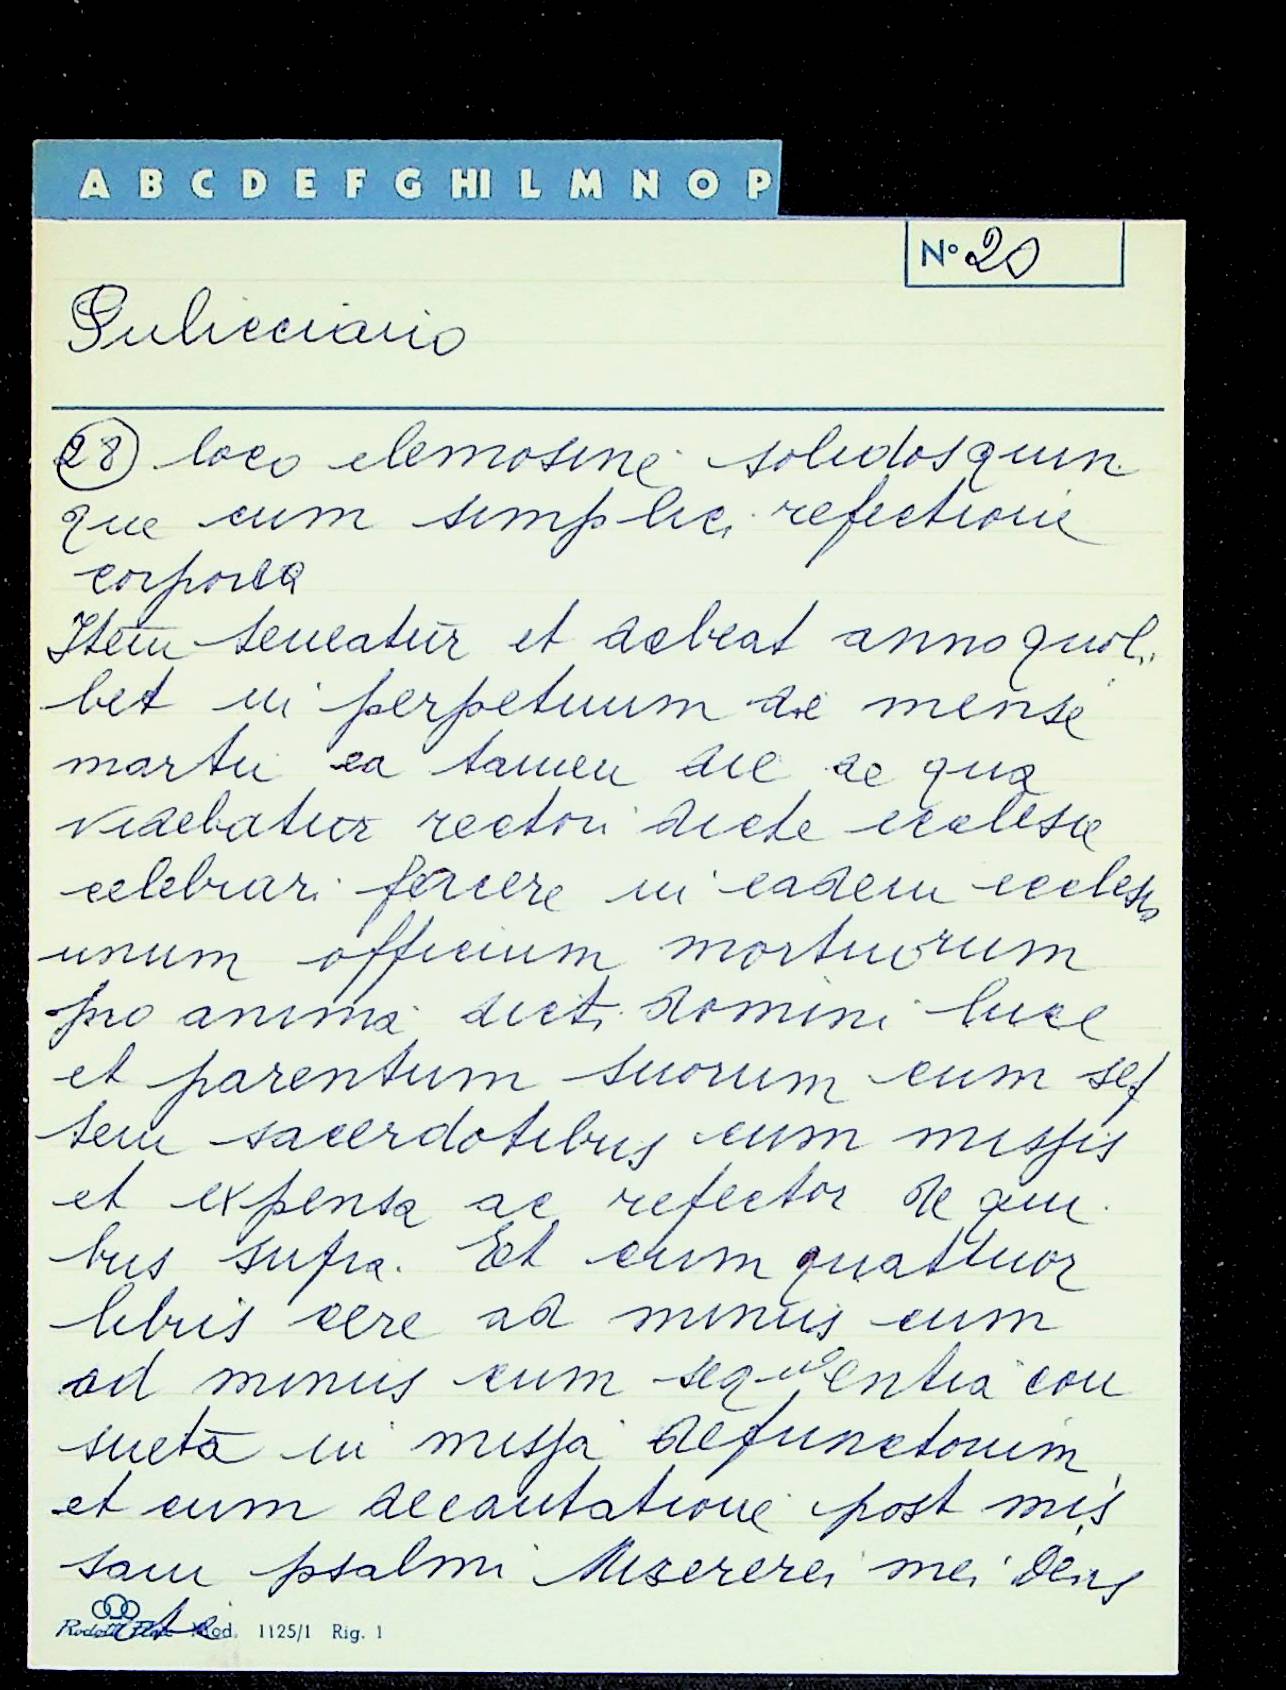 A B C D E F G HI L M N O P
Nº 20
Pulicciano
(28) loco elemosine solidos quin
que cum simplici refectione
corporea
Item teneatur et debeat anno quoli
bet in perpetuum de mense
martii ea tamen die de qua
videbatur rectori dicte ecclesie
celebrari facere in eadem ecclesia
unum officium mortuorum
pro anima dicti domini luce
et parentum suorum cum sep
tem sacerdotibus cum missis
et expensa ac refector de qui
bus supra. Et cum quattuor
libris cere ad minus cum
ad minus cum sequentia con
sueta in missa defunctorum
et cum decantatione post mis
sam psalmi Miserere mei Deus
Mod. 1125/1 Rig. 1